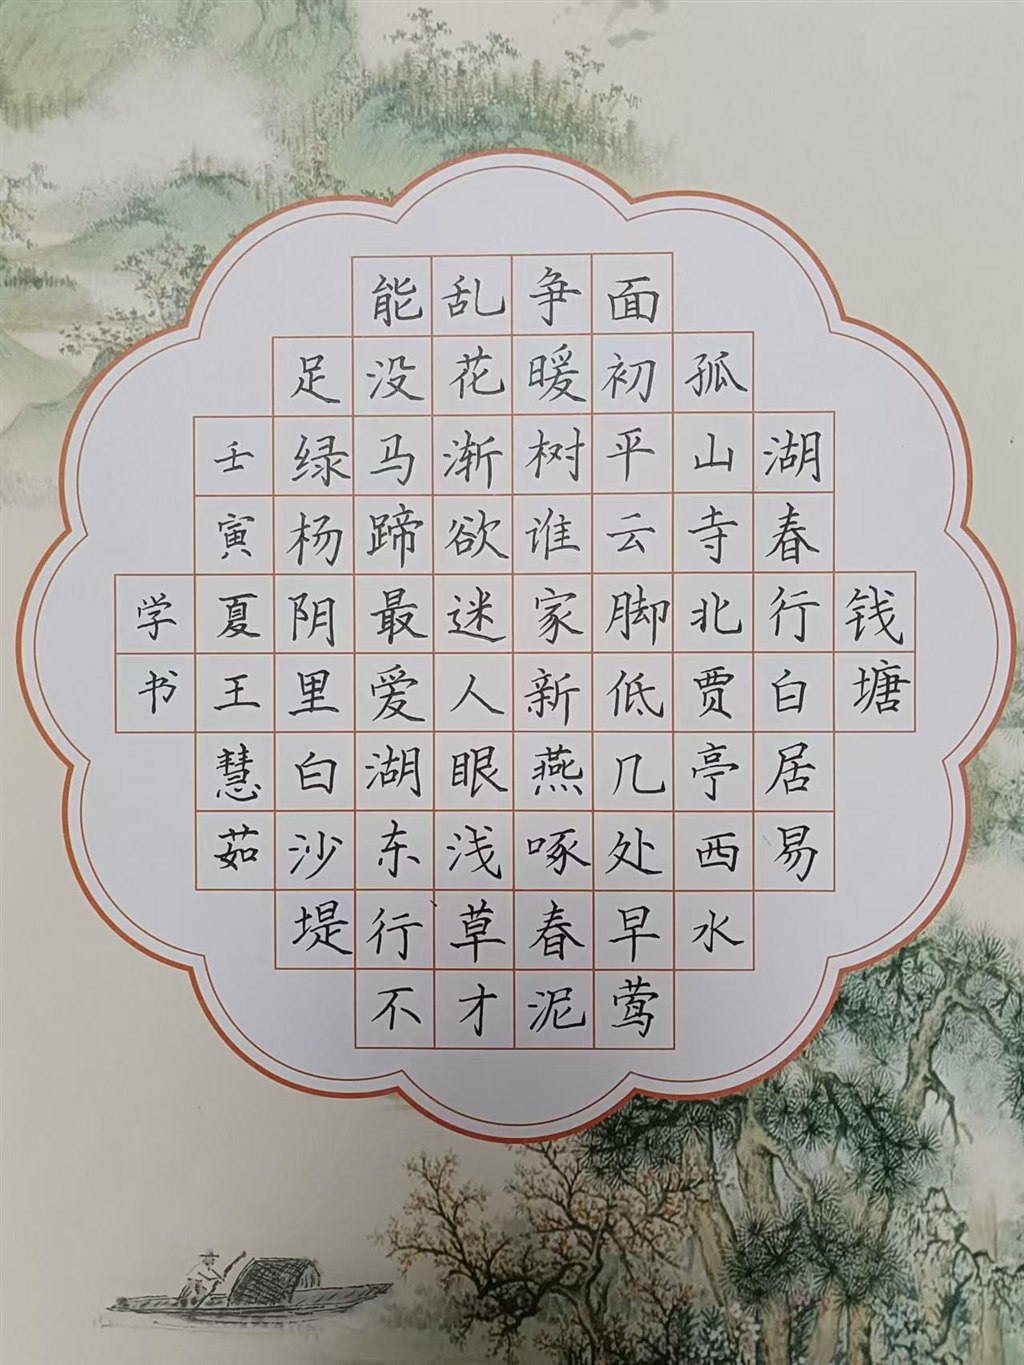 钱塘
湖春行白居易
孤山寺北贾亭西水
面初平云脚低几处早莺
争暖树谁家新燕啄春泥
乱花渐欲迷人眼浅草才
能没马蹄最爱湖东行不
足绿杨阴里白沙堤
壬寅夏王慧茹
学书